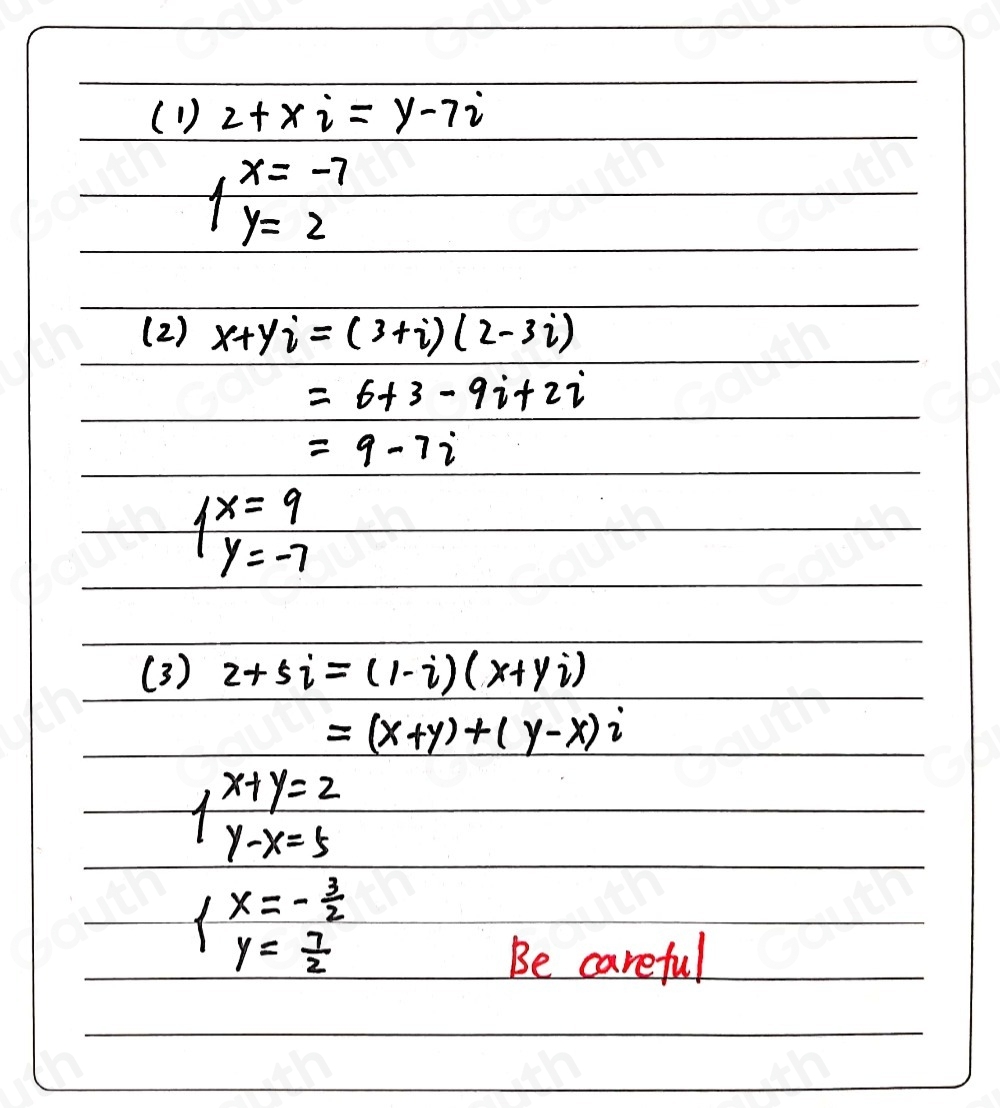 (1) 2+xi=y-7i
x=-7
y=2
(2) x+yi=(3+i)(2-3i)
=6+3-9i+2i
=9-7i
x=9
y=-7
(3) 2+5i=(1-i)(x+yi)
=(x+y)+(y-x)i
x+y=2
y-x=5
x=-3/2
y=7/2
Be careful